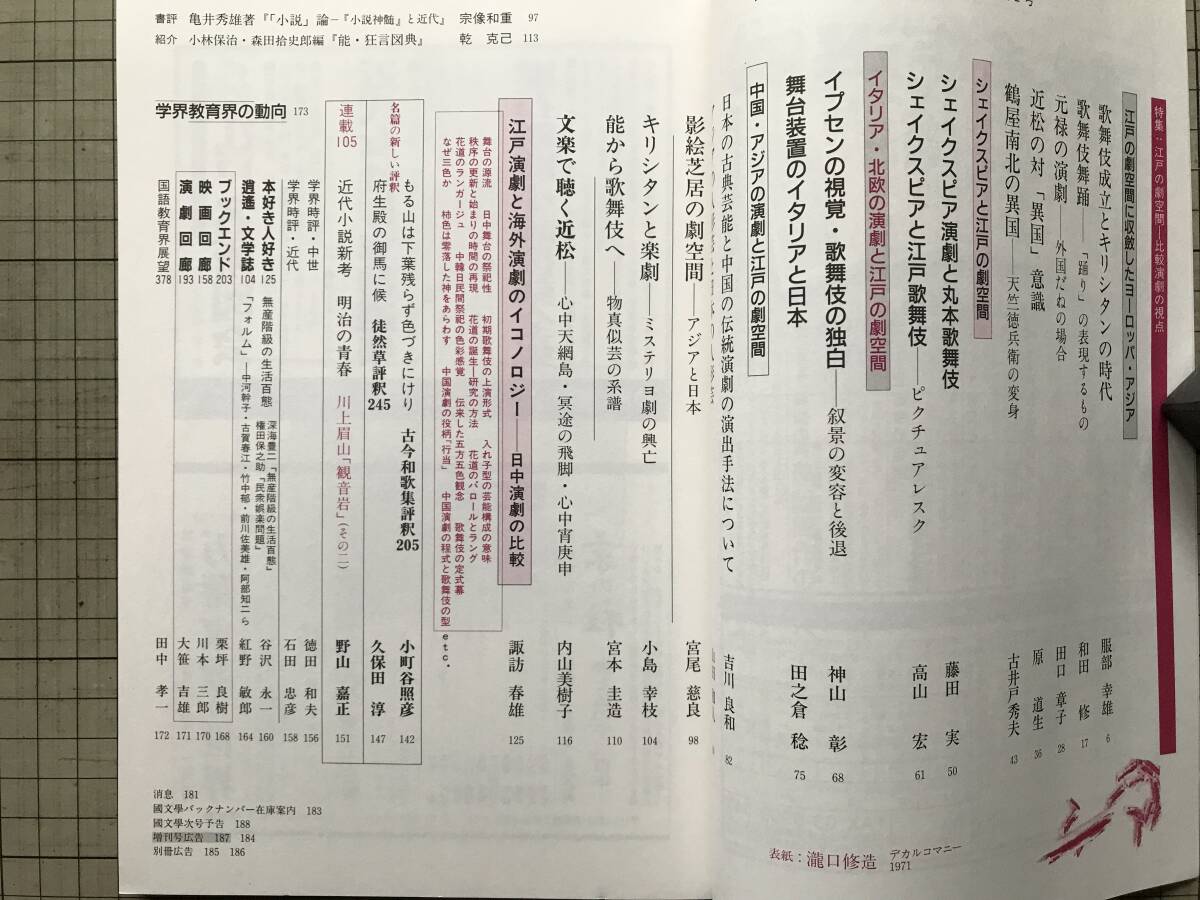 特集：江戸の劇空間―比較演劇の視点
江戸の劇空間に収斂したヨーロッパ・アジア
歌舞伎成立とキリシタンの時代 服部 幸雄 6
歌舞伎舞踊――「踊り」の表現するもの 和田 修 17
元禄の演劇――外国だねの場合 田口 章子 28
近松の対「異国」意識 原 道生 36
鶴屋南北の異国――天竺徳兵衛の変身 古井戸秀夫 43
シェイクスピアと江戸の劇空間
シェイクスピア演劇と丸本歌舞伎 藤田 実 50
シェイクスピアと江戸歌舞伎――ピクチュアレスク 高山 宏 61
イタリア・北欧の演劇と江戸の劇空間
イプセンの視覚・歌舞伎の独白――叙景の変容と後退 神山 彰 68
舞台装置のイタリアと日本 田之倉 稔 75
中国・アジアの演劇と江戸の劇空間
日本の古典芸能と中国の伝統演劇の演出手法について 吉川 良和 82
影絵芝居の劇空間――アジアと日本 宮尾 慈良 98
キリシタンと楽劇――ミステリヨ劇の興亡 小島 幸枝 104
能から歌舞伎へ――物真似芸の系譜 宮本 圭造 110
文楽で聴く近松――心中天網島・冥途の飛脚・心中宵庚申 内山美樹子 116
江戸演劇と海外演劇のイコノロジー――日中演劇の比較 諏訪 春雄 125
舞台の源流 日中舞台の祭祀性 初期歌舞伎の上演形式 入れ子型の芸能構成の意味
秩序の更新と始まりの時間の再現 花道の誕生―研究の方法 花道のパロールとラング
花道のランガージュ 中韓日民間祭祀の色彩感覚 伝来した五方五色観念 歌舞伎の定式幕
なぜ三色か 柿色は零落した神をあらわす 中国演劇の役柄「行当」 中国演劇の程式と歌舞伎の型 etc.
名篇の新しい評釈
もる山は下葉残らず色づきにけり 古今和歌集評釈205 小町谷照彦 142
府生殿の御馬に候 徒然草評釈245 久保田 淳 147
連載105
近代小説新考 明治の青春 川上眉山「観音岩」(その二) 野山 嘉正 151
学界教育界の動向 173
学界時評・中世 徳田 和夫 156
学界時評・近代 石田 忠彦 158
本好き人好き125 無産階級の生活百態 深海豊二『無産階級の生活百態』 権田保之助『民衆娯楽問題』 谷沢 永一 160
逍遙・文学誌104 「フォルム」――中河幹子・古賀春江・竹中郁・前川佐美雄・阿部知二ら 紅野 敏郎 164
ブックエンド203 栗坪 良樹 168
映画回廊158 川本 三郎 170
演劇回廊193 大笹 吉雄 171
国語教育界展望378 田中 孝一 172
書評 亀井秀雄著『「小説」論―『小説神髄』と近代』 宗像和重 97
紹介 小林保治・森田拾史郎編『能・狂言図典』 乾 克己 113
消息 181
國文學バックナンバー在庫案内 183
國文學次号予告 188
増刊号広告 187 184
別冊広告 185 186
表紙：瀧口修造 デカルコマニー 1971